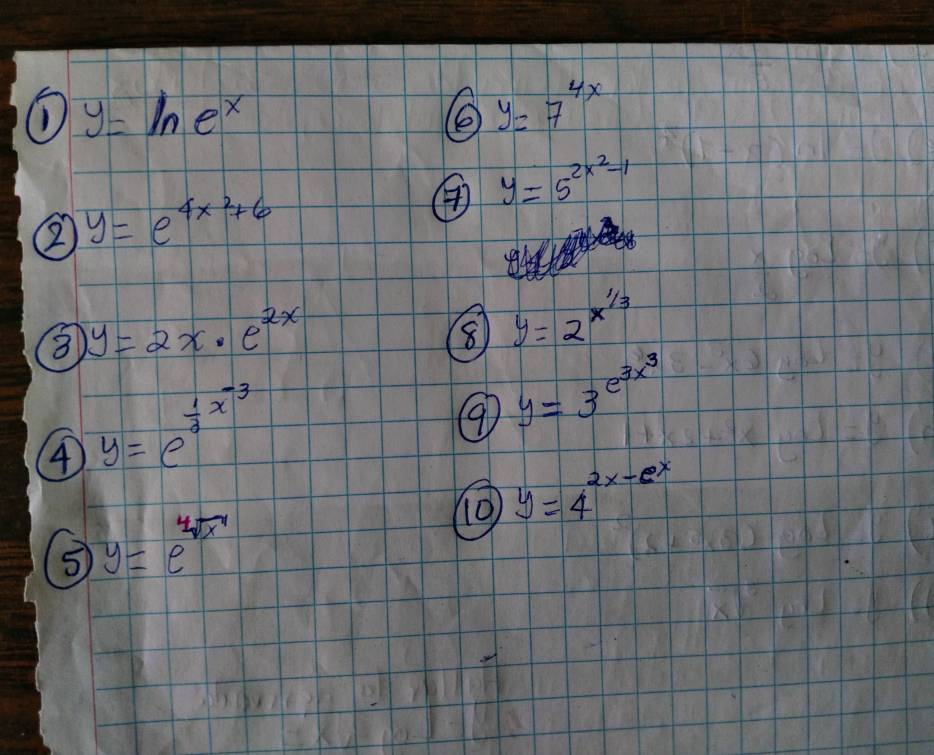 ① y = ln e^x
② y = e^{4x^2+6}
③ y = 2x · e^{2x}
④ y = e^{\frac{1}{3}x^{-3}}
⑤ y = e^{\sqrt[4]{x}}
⑥ y = 7^{4x}
⑦ y = 5^{2x^2-1}
⑧ y = 2^{x^{1/3}}
⑨ y = 3^{e^{3x^3}}
⑩ y = 4^{2x-e^x}